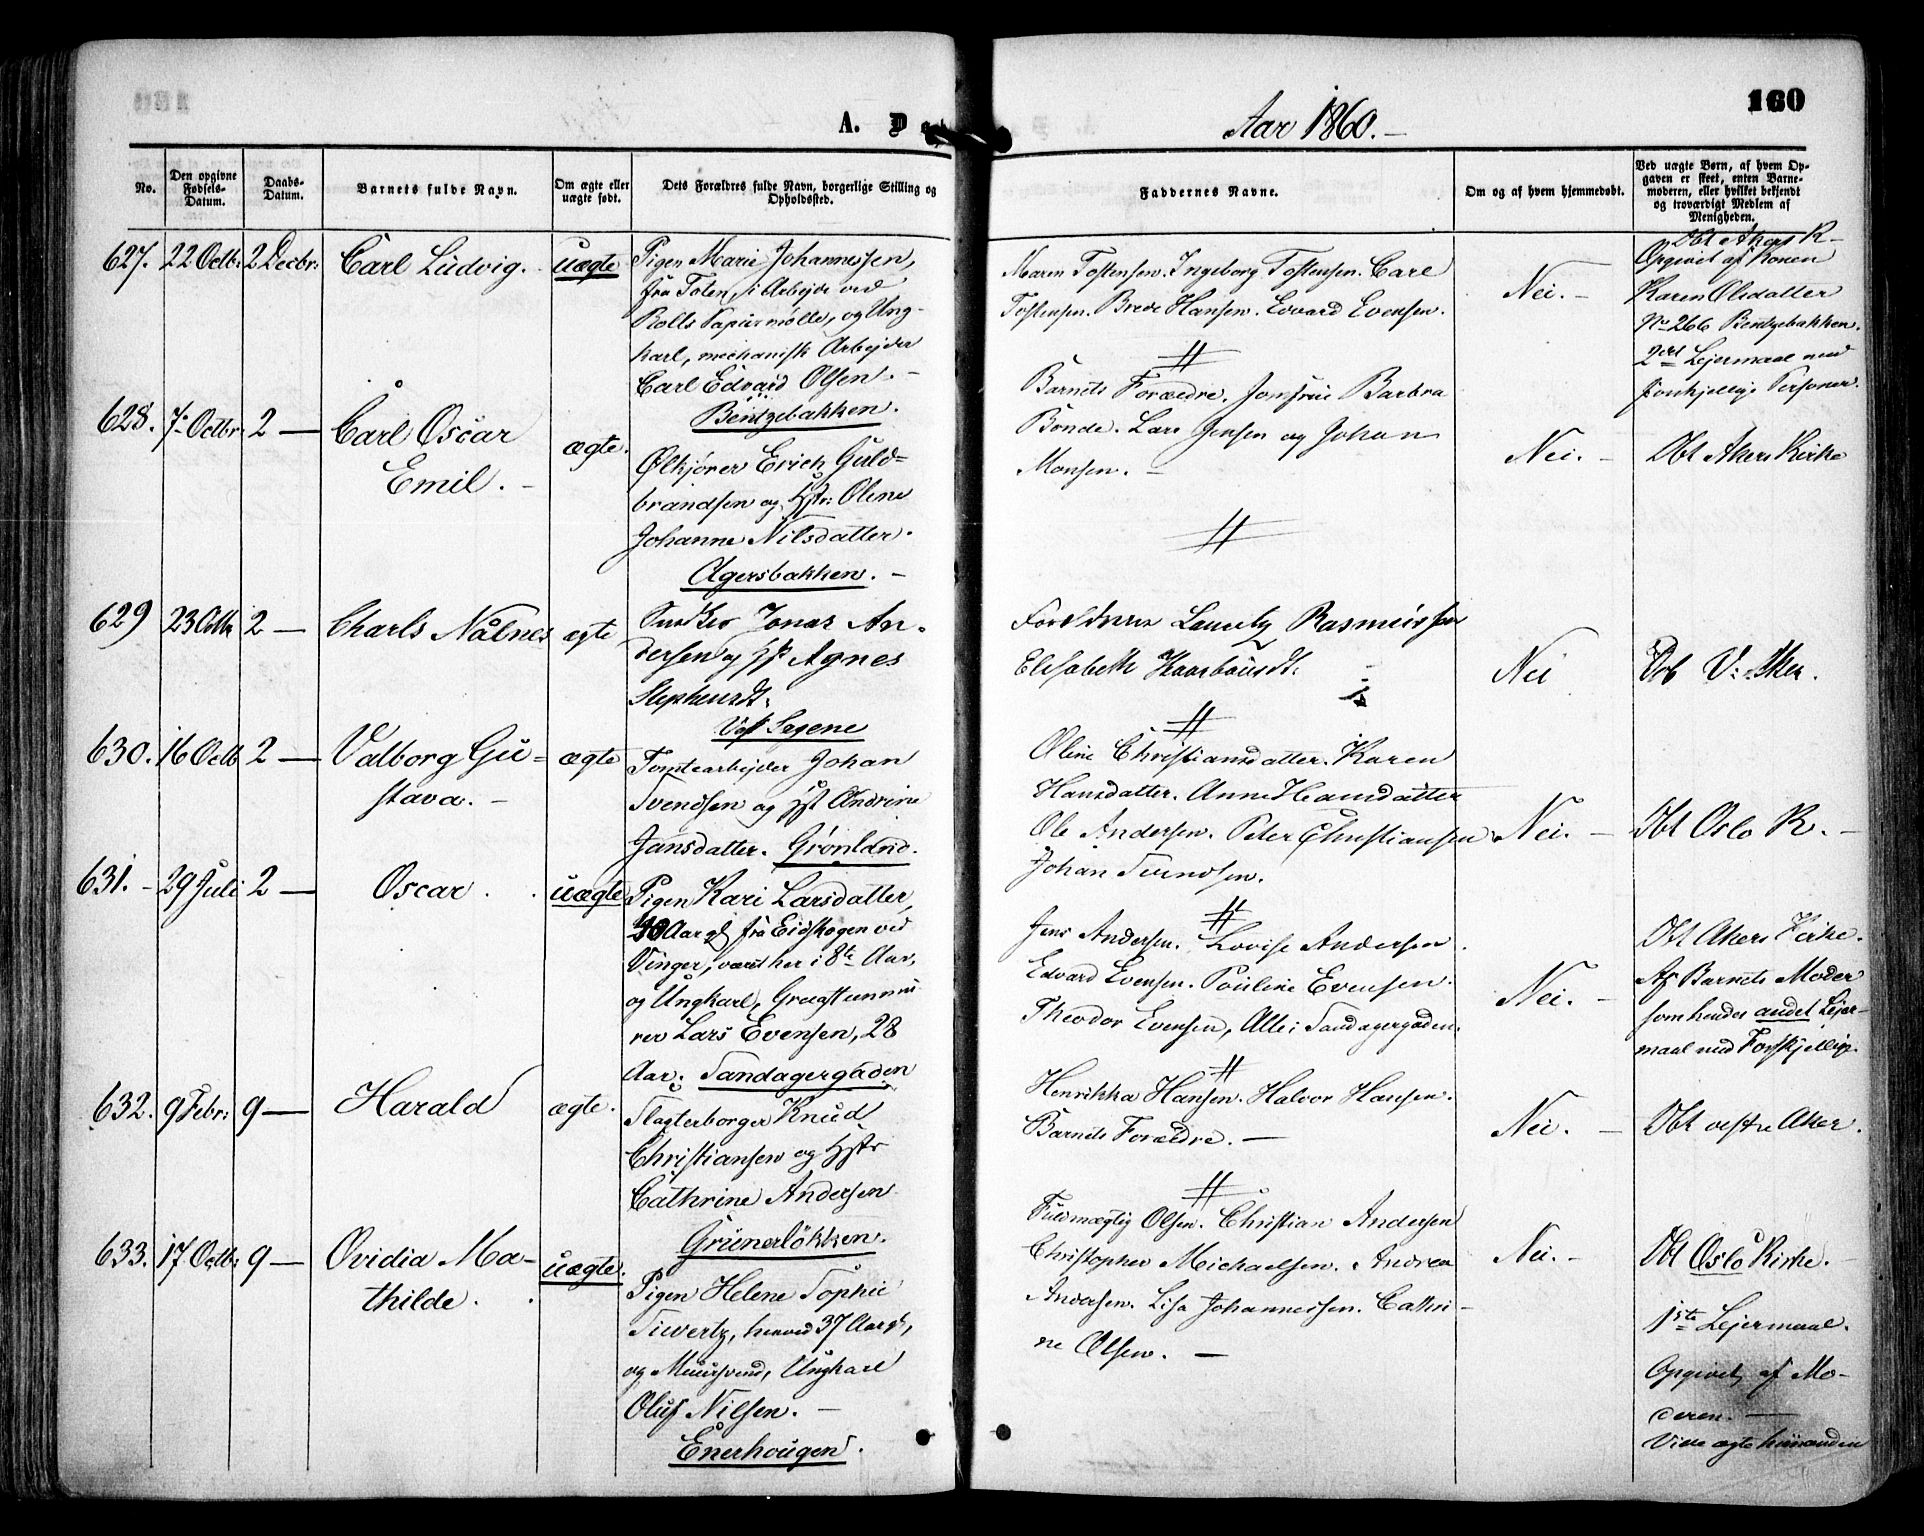 A. D
Aar 1860. –
160
No.
Den opgivne Fødsels-Datum.
Daabs-Datum.
Barnets fulde Navn.
Om ægte eller uægte født.
Dets Forældres fulde Navn, borgerlige Stilling og Opholdssted.
Faddernes Navne.
Om og af hvem hjemmedøbt.
Ved uægte Børn, af hvem Opgaven er skeet, enten Barnemoderen, eller hvilket bekjendt og troværdigt Medlem af Menigheden.
627. 22 Octb: 2 Decbr: Carl Ludvig. uægte
Pigen Marie Johannessen,
fra Toten, i Arbejde ved
Bolts Papiermølle, og Ung-
karl, mechanisk Arbejder
Carl Edvard Olsen. –
Bentzebakken.
Maren Tostensen. Ingeborg Tostensen. Carl
Tostensen. Brede Hansen. Edvard Evensen.
Nei. –
Dbt Akers K –
Opgivet af Konen
Karen Olsdatter
No 266 Bentzebakken.
2det Lejermaal med
forskjellige Personer.
628. 7. Octbr 2 — Carl Oscar
Emil. – ægte.
Ølkjører Erich Guld-
brandsen og Hstr: Oline
Johanne Nilsdatter.
Agersbakken. –
Barnets Forældre. Jomfrue Barbra
Bonde. Lars Jensen og Johan
Monsen. –
Nei. –
Dbt Akers Kirke
629 23 Octb 2 — Charls Nålnes ægte
Jonas An-
dersen og Hst Agnes
Stephensdt.
Vest Sagene
Forældrene Rasmussen
Elisabeth
Nei
Dob V. Aker.
630. 16 Octb 2 — Valborg Gu-
stava. – ægte
Tomtearbejder Johan
Svendsen og Hst Andrine
Jansdatter. Grønland.
Oline Christiansdatter. Karen
Hansdatter. Anne Hansdatter
Ole Andersen. Peter Christiansen
Johan Svendsen.
Nei. –
Dbt Oslo K. –
631. – 29 Juli 2 — Oscar. uægte
Pigen Kari Larsdatter,
Aar gl fra Eidskogen ved
Vinger, været her i 8te Aar,
og Ungkarl,
Lars Evensen, 28
Aar. Sandagergaden
Jens Andersen. Lovise Andersen.
Edvard Evensen. Pauline Evensen.
Theodor Evensen, Alle i Sandagergaden.
Nei. –
Dbt Akers Kirke.
Af Barnets Moder
som hendes andet Lejer-
maal med Forskjellige
632. 9 Febr: 9 — Harald ægte.
Slagterborger Knud
Christiansen og Hstr
Cathrine Andersen
Grünerløkken.
Henrikka Hansen. Halvor Hansen.
Barnets Forældre. —
Nei. –
Dbt vestre Aker.
633. 17 Octb: 9 — Ovidia Ma-
thilde. uægte.
Pigen Helene Sophie
Siwertz, henved 37 Aar gl,
og Muursvend, Ungkarl
Oluf Nilsen. –
Enerhougen.
Fuldmægtig Olsen. Christian Andersen
Christopher Michaelsen. Andrea
Andersen. Lisa Johannessen. Cathri-
ne Olsen. —
Nei. –
Dbt Oslo Kirke.
1ste Lejermaal.
Opgivet af Mo-
deren. —
Ville ægte hinanden